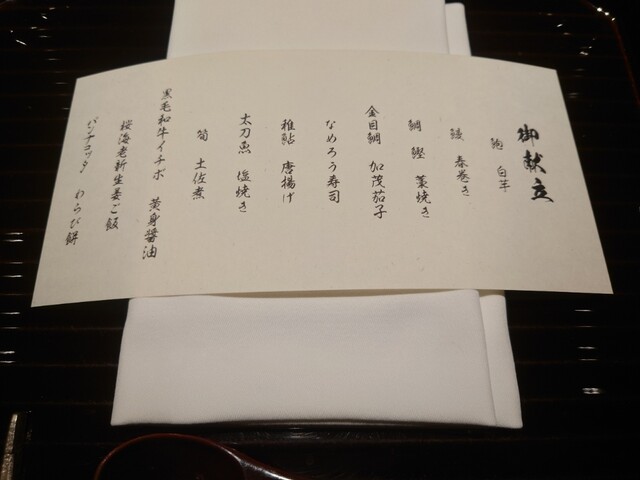 御献立
鮑 白芋
鰻 春巻き
鯛 鰹 藁焼き
金目鯛 加茂茄子
なめろう寿司
稚鮎 唐揚げ
太刀魚 塩焼き
筍 土佐煮
黒毛和牛イチボ 黄身醤油
桜海老新生姜ご飯
パンナコッタ わらび餅